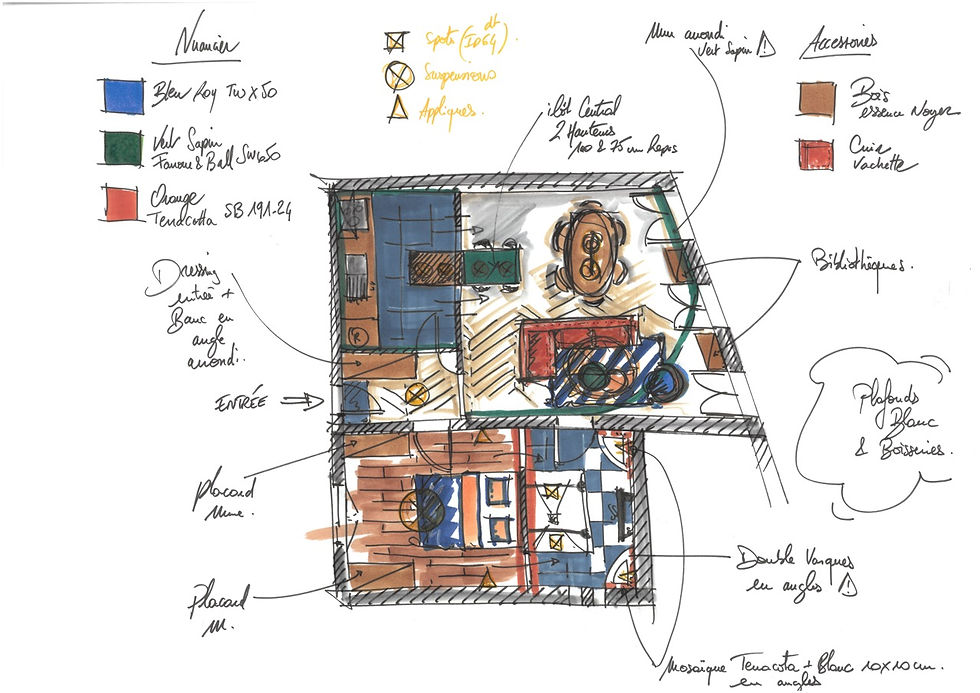 Nuancier
Bleu Roy TW X50
Vert Sapin
Farrow & Ball SW650
Orange
Terracotta SB 191-24
Spots (IP64)
Suspensions
Appliques.
Mur arrondi
Vert Sapin
Accessoires
Bois
essence Noyer
Cuir
Vachette
ilôt Central
2 Hauteurs
100 & 75 cm Repas
Dressing
entrée +
Banc en
angle
arrondi.
ENTRÉE
Bibliothèques.
Plafonds
Blanc
& Boiseries.
Placard
Mme.
Placard
M.
Double Vasques
en angles
Mosaïque Terracota + Blanc 10x10cm.
en angles